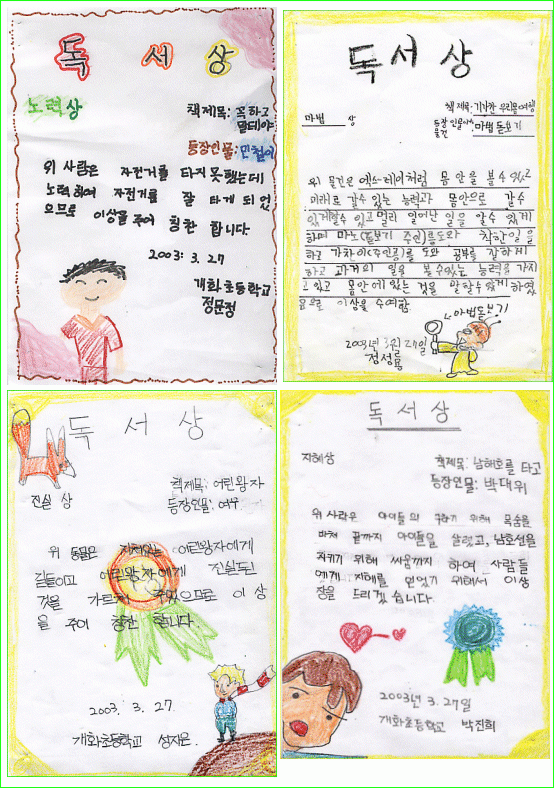 독 서 상
노력상
책제목: 꼭하고
말테야
등장인물: 민철이
위 사람은 자전거를 타지 못했는데
노력하여 자전거를 잘 타게 되었
으므로 이상을 주어 칭찬 합니다
2003. 3. 27
개화초등학교
정문정
독 서 상
마법 상
책제목: 기가찬 우리몸여행
물건 : 마법돋보기
위 물건은 엑스레이처럼 몸 안을 볼수 있고
미래로 갈수 있는 능력과 몸안으로 갈수
있게할수 있고 멀리 일어난 일을 알수 있게
하며 마노(돋보기 주인)를 도와 착한일을
하고 가찬이(주인공)를 도와 공부를 잘하게
하고 과거의 일을 볼수있는 능력을 가지
고 있고 몸안에 있는 것을 말할수 있게 하였
음으로 이상을 수여함
마법돋보기
2003년 3월 27일
독 서 상
진실 상
책제목: 어린왕자
등장인물: 여우
위 동물은 어린왕자에게
길들이고 어린왕자에게 진실된
것을 가르쳐 주었으므로 이 상
을 주어 칭찬 합니다
2003. 3. 27
개화초등학교 성지은
독 서 상
지혜상
책제목: 남해호를 타고
등장인물: 박대위
위 사람은 아이들의 구하기 위해 목숨을
바쳐 끝까지 아이들을 살렸고, 남호선을
지키기 위해 싸움까지 하여 사람들
에게 지혜를 얻었기 위해서 이상
장을 드리겠습니다
2003년 3.27일
개화초등학교 박진희